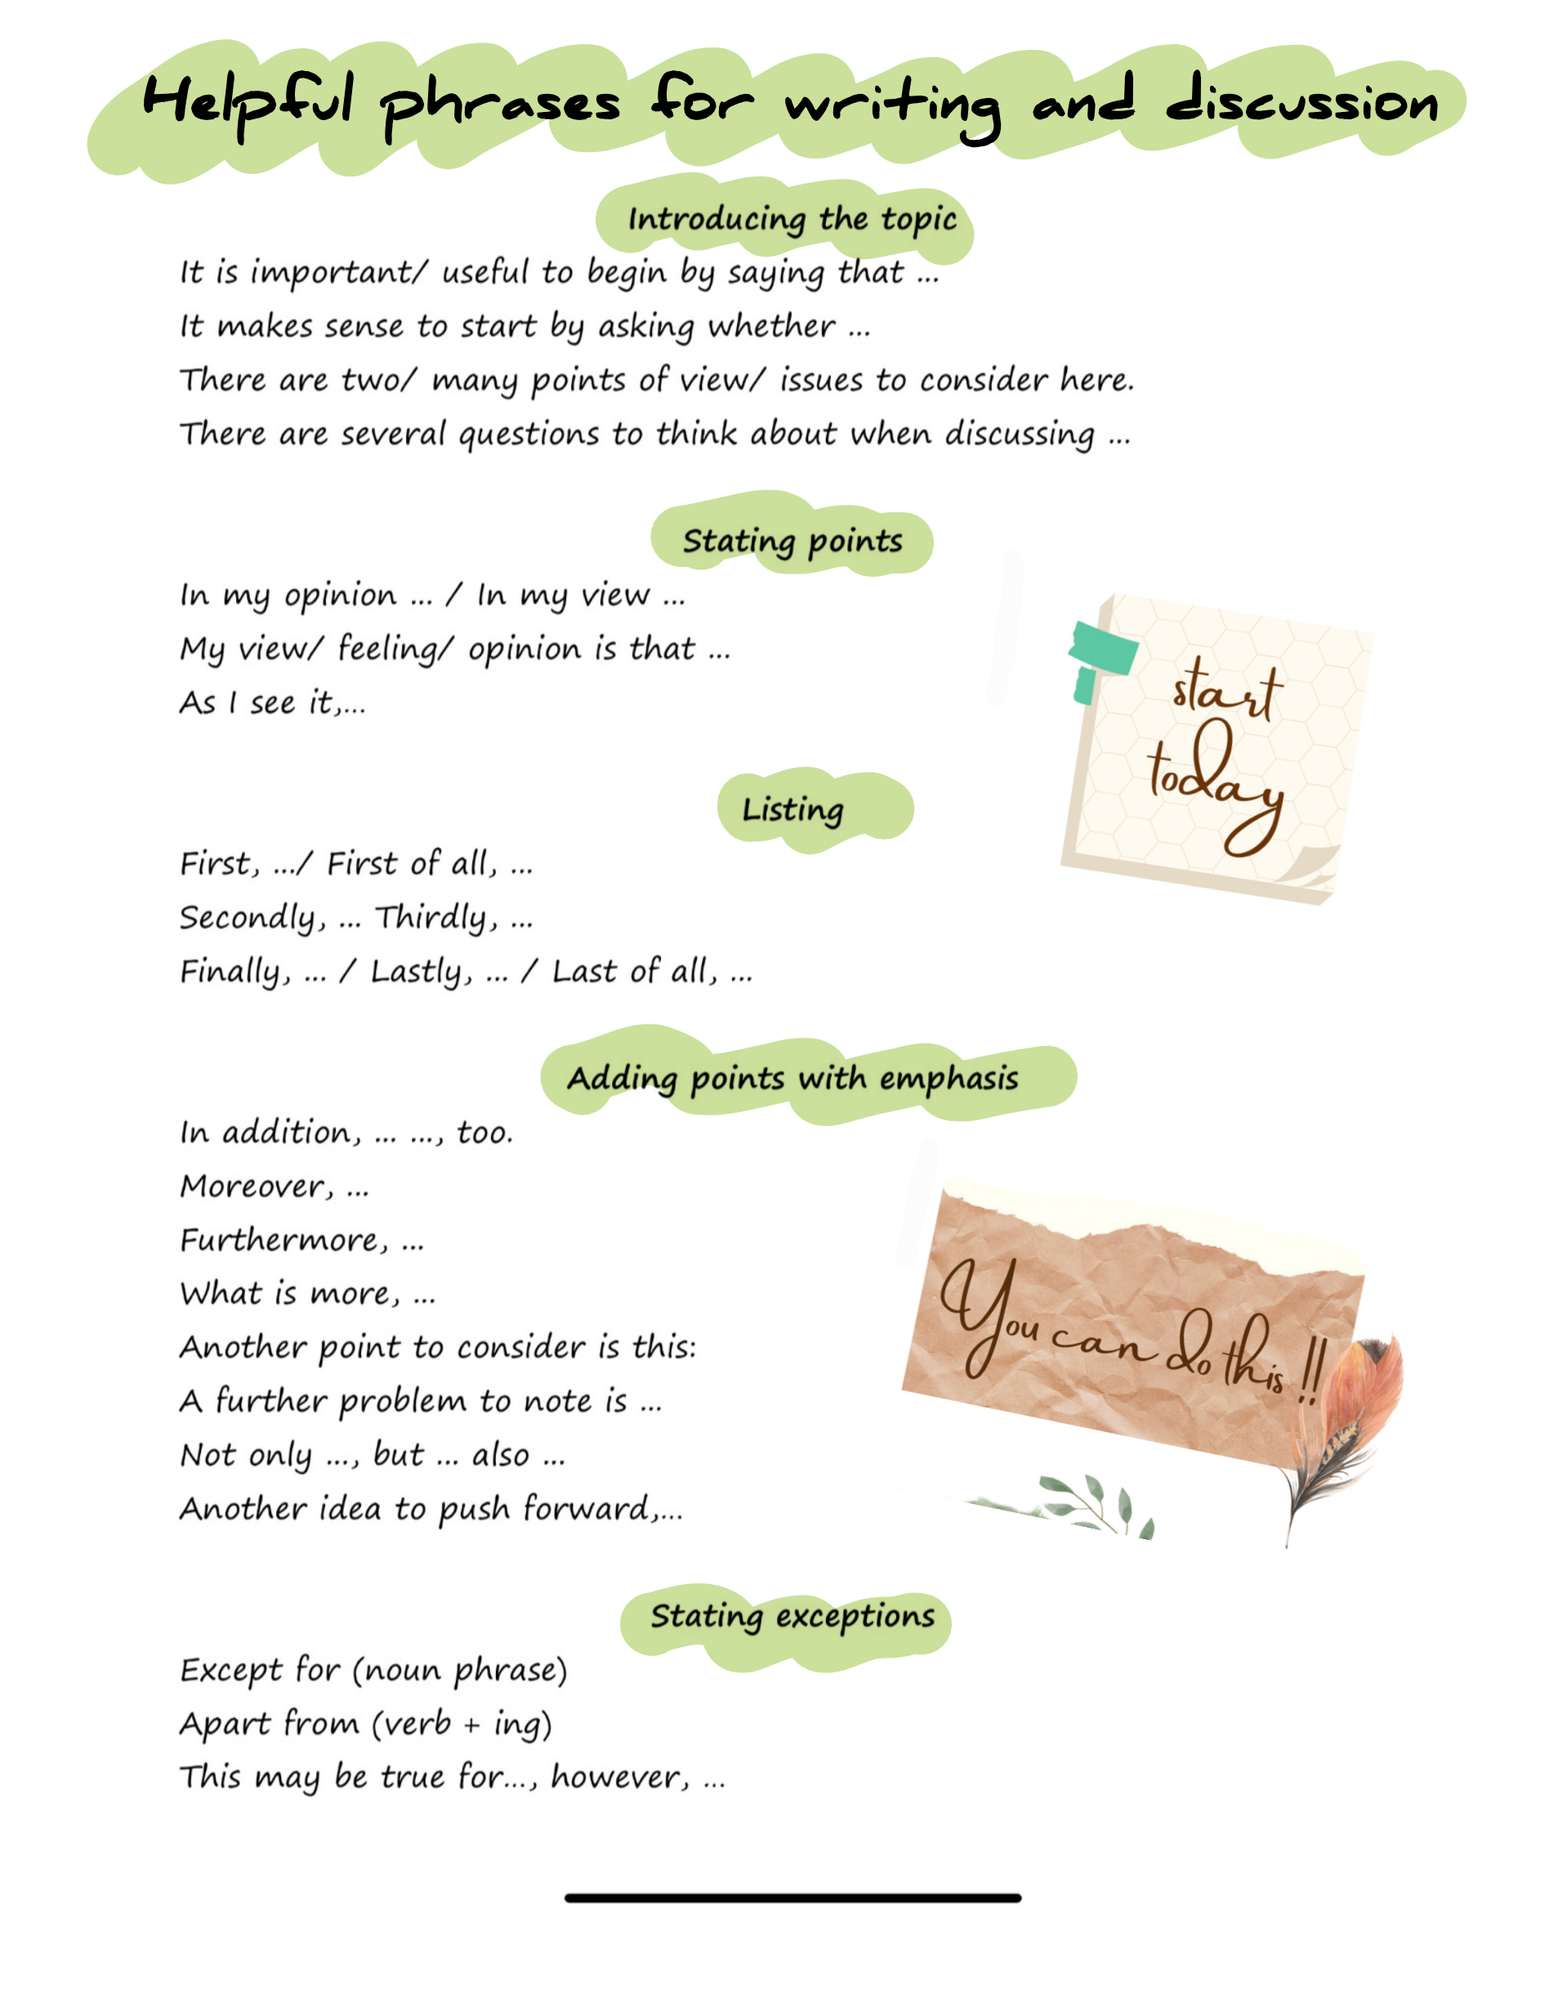 Helpful phrases for writing and discussion
Introducing the topic
It is important/ useful to begin by saying that ...
It makes sense to start by asking whether ...
There are two/ many points of view/ issues to consider here.
There are several questions to think about when discussing ...
Stating points
In my opinion ... / In my view ...
My view/ feeling/ opinion is that ...
As I see it,...
start
today
Listing
First, .../ First of all, ...
Secondly, ... Thirdly, ...
Finally, ... / Lastly, ... / Last of all, ...
Adding points with emphasis
In addition, ... ..., too.
Moreover, ...
Furthermore, ...
What is more, ...
Another point to consider is this:
A further problem to note is ...
Not only ..., but ... also ...
Another idea to push forward,...
You can do this !!
Stating exceptions
Except for (noun phrase)
Apart from (verb + ing)
This may be true for..., however, ...